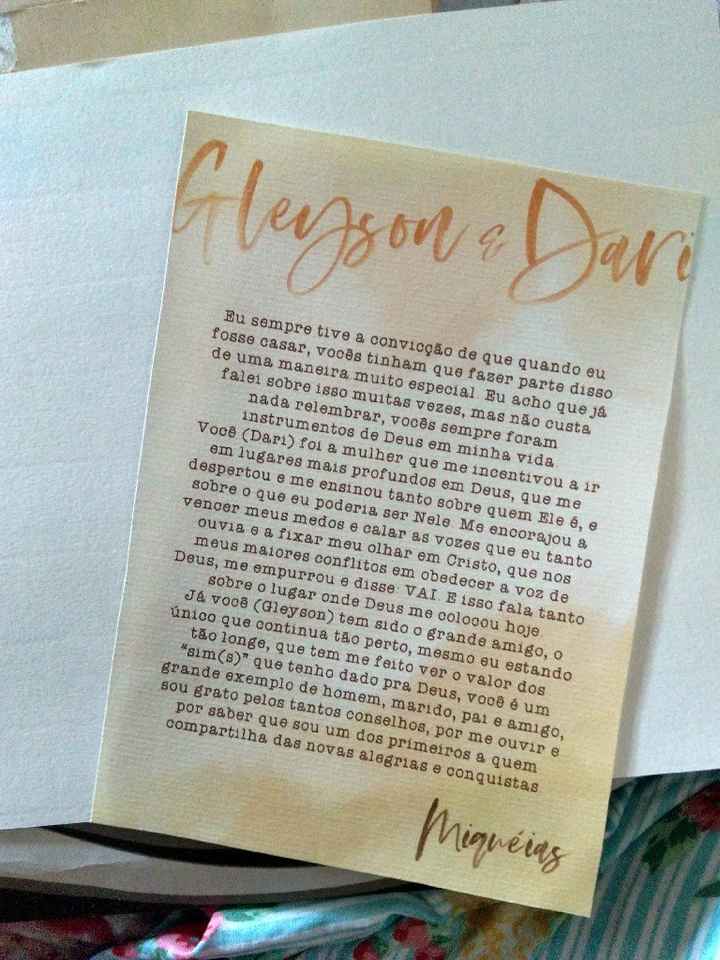 Gleyson & Dari
Eu sempre tive a convicção de que quando eu
fosse casar, vocês tinham que fazer parte disso
de uma maneira muito especial. Eu acho que já
falei sobre isso muitas vezes, mas não custa
nada relembrar, vocês sempre foram
instrumentos de Deus em minha vida.
Você (Dari) foi a mulher que me incentivou a ir
em lugares mais profundos em Deus, que me
despertou e me ensinou tanto sobre quem Ele é, e
sobre o que eu poderia ser Nele. Me encorajou a
vencer meus medos e calar as vozes que eu tanto
ouvia e a fixar meu olhar em Cristo, que nos
meus maiores conflitos em obedecer a voz de
Deus, me empurrou e disse: VAI. E isso fala tanto
sobre o lugar onde Deus me colocou hoje.
Já você (Gleyson) tem sido o grande amigo, o
único que continua tão perto, mesmo eu estando
tão longe, que tem me feito ver o valor dos
“sim(s)” que tenho dado pra Deus, você é um
grande exemplo de homem, marido, pai e amigo,
sou grato pelos tantos conselhos, por me ouvir e
por saber que sou um dos primeiros a quem
compartilha das novas alegrias e conquistas.
Miquéias